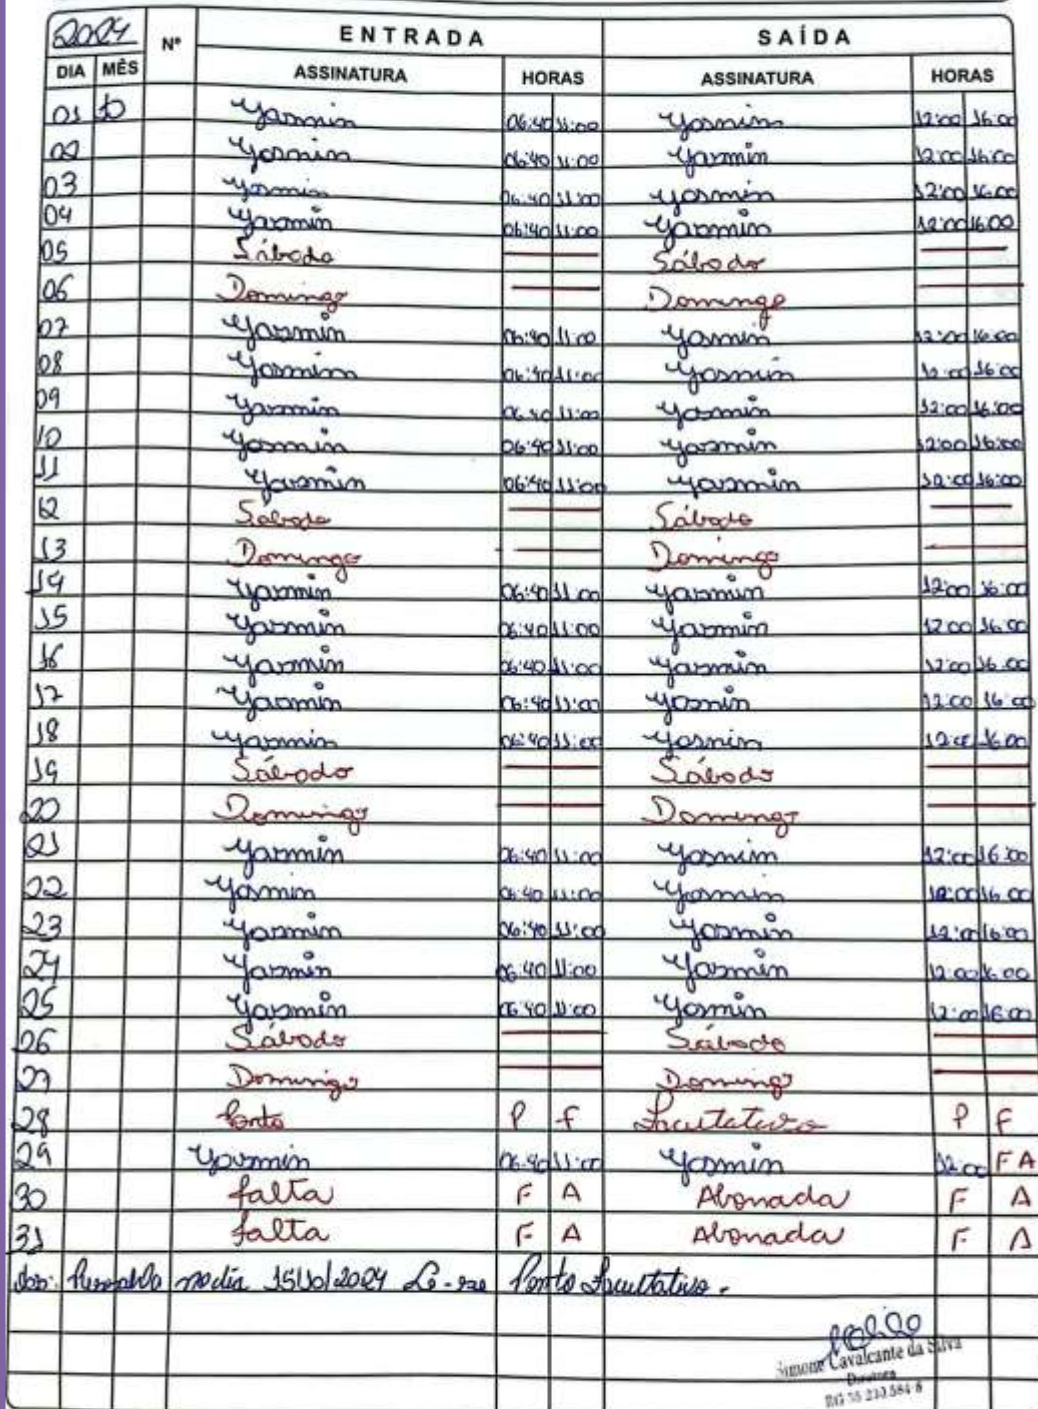 2024 Nº ENTRADA SAÍDA
DIA MÊS ASSINATURA HORAS ASSINATURA HORAS
01 10 Yasmin 06:40 11:00 Yasmin 12:00 16:00
02 Yasmin 06:40 11:00 Yasmin 12:00 16:00
03 Yasmin 06:40 11:00 Yasmin 12:00 16:00
04 Yasmin 06:40 11:00 Yasmin 12:00 16:00
05 Sábado Sábado
06 Domingo Domingo
07 Yasmin 06:40 11:00 Yasmin 12:00 16:00
08 Yasmin 06:40 11:00 Yasmin 12:00 16:00
09 Yasmin 06:40 11:00 Yasmin 12:00 16:00
10 Yasmin 06:40 11:00 Yasmin 12:00 16:00
11 Yasmin 06:40 11:00 Yasmin 12:00 16:00
12 Sábado Sábado
13 Domingo Domingo
14 Yasmin 06:40 11:00 Yasmin 12:00 16:00
15 Yasmin 06:40 11:00 Yasmin 12:00 16:00
16 Yasmin 06:40 11:00 Yasmin 12:00 16:00
17 Yasmin 06:40 11:00 Yasmin 12:00 16:00
18 Yasmin 06:40 11:00 Yasmin 12:00 16:00
19 Sábado Sábado
20 Domingo Domingo
21 Yasmin 06:40 11:00 Yasmin 12:00 16:00
22 Yasmin 06:40 11:00 Yasmin 12:00 16:00
23 Yasmin 06:40 11:00 Yasmin 12:00 16:00
24 Yasmin 06:40 11:00 Yasmin 12:00 16:00
25 Yasmin 06:40 11:00 Yasmin 12:00 16:00
26 Sábado Sábado
27 Domingo Domingo
28 Ponto P F Facultativo P F
29 Yasmin 06:40 11:00 Yasmin 12:00 F A
30 falta F A Abonada F A
31 falta F A Abonada F A
Obs: Ressalva no dia 15/10/2024 Lê-se Ponto Facultativo.
Simone Cavalcante da Silva
Diretora